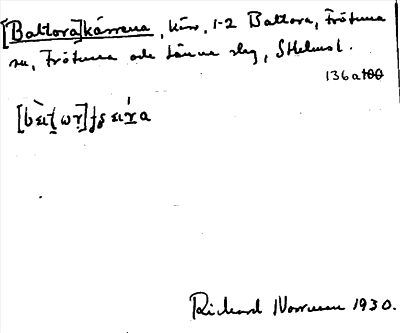 [Battora]kärrena, kärr, 1-2 Battora, Frötuna
sn, Frötuna och Länna slg, Sthlms l.
136a100
Richard Norrman 1930.